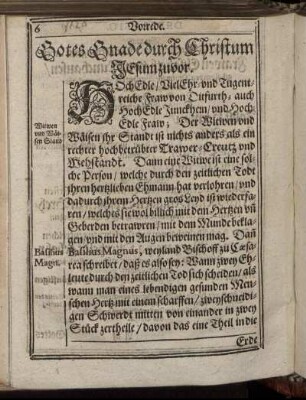 6 Vorrede.
Gottes Gnade durch Christum
JEsum zuvor.
HOchEdle, VielEhr und Tugent
reiche Fraw von Ditfurth, auch
HochEdle Junckhern, und Hoch
Edle Fraw, Der Witwen und
Witwen
und Wäi-
sen Stand
Wäisen ihr Standt ist nichts anders als ein
rechter hochbetrübter Trawer, Creutz und
Wehstandt. Dann eine Witwe ist eine sol-
che Person, welche durch den zeitlichen Todt
ihren hertzlieben Ehmann hat verlohren, und
dadurch ihrem Hertzen gros Leyd ist wiederfa-
ren, welchs sie wol billich mit dem Hertzen uñ
Geberden betrawren, mit dem Munde bekla-
gen, und mit den Augen beweinen mag. Dañ
Basilius
Magn.
Basilius Magnus, weyland Bischoff zu Cæsa-
rea schreibet, daß es also sey: Wann zwey Eh-
leute durch den zeitlichen Tod sich scheiden, als
wann man eines lebendigen gesunden Men-
schen Hertz mit einem scharffen, zweyschneidi-
gen Schwerdt mitten von einander in zwey
Stück zertheilt, davon das eine Theil in die
Erde